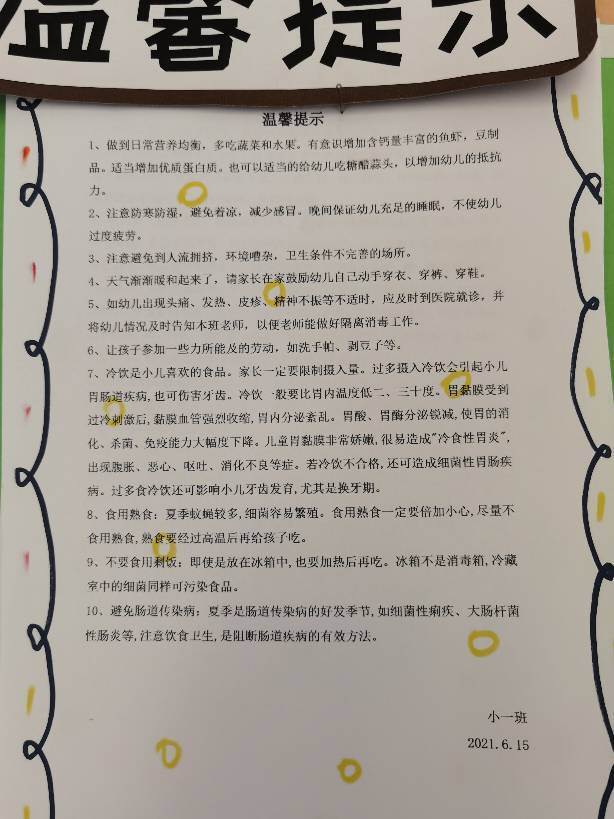 温馨提示
温馨提示
1、做到日常营养均衡，多吃蔬菜和水果。有意识增加含钙量丰富的鱼虾，豆制
品。适当增加优质蛋白质。也可以适当的给幼儿吃糖醋蒜头，以增加幼儿的抵抗
力。
2、注意防寒防湿，避免着凉，减少感冒。晚间保证幼儿充足的睡眠，不使幼儿
过度疲劳。
3、注意避免到人流拥挤，环境嘈杂，卫生条件不完善的场所。
4、天气渐渐暖和起来了，请家长在家鼓励幼儿自己动手穿衣、穿裤、穿鞋。
5、如幼儿出现头痛、发热、皮疹、精神不振等不适时，应及时到医院就诊，并
将幼儿情况及时告知本班老师，以便老师能做好隔离消毒工作。
6、让孩子参加一些力所能及的劳动，如洗手帕、剥豆子等。
7、冷饮是小儿喜欢的食品。家长一定要限制摄入量。过多摄入冷饮会引起小儿
胃肠道疾病，也可伤害牙齿。冷饮一般要比胃内温度低二、三十度。胃黏膜受到
过冷刺激后，黏膜血管强烈收缩，胃内分泌紊乱。胃酸、胃酶分泌锐减，使胃的消
化、杀菌、免疫能力大幅度下降。儿童胃黏膜非常娇嫩，很易造成"冷食性胃炎"，
出现腹胀、恶心、呕吐、消化不良等症。若冷饮不合格，还可造成细菌性胃肠疾
病。过多食冷饮还可影响小儿牙齿发育，尤其是换牙期。
8、食用熟食：夏季蚊蝇较多，细菌容易繁殖。食用熟食一定要倍加小心，尽量不
食用熟食，熟食要经过高温后再给孩子吃。
9、不要食用剩饭：即使是放在冰箱中，也要加热后再吃。冰箱不是消毒箱，冷藏
室中的细菌同样可污染食品。
10、避免肠道传染病：夏季是肠道传染病的好发季节，如细菌性痢疾、大肠杆菌
性肠炎等，注意饮食卫生，是阻断肠道疾病的有效方法。
小一班
2021.6.15